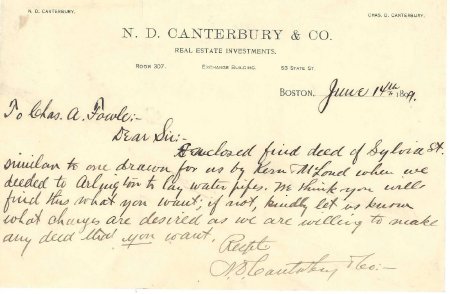 N. D. CANTERBURY.
CHAS. D. CANTERBURY.
N. D. CANTERBURY & CO.
REAL ESTATE INVESTMENTS.
ROOM 307. EXCHANGE BUILDING. 53 STATE ST.
BOSTON, June 14th 189.
To Chas. A. Fowle,-
Dear Sir:-
Enclosed find deed of Sylvia St.
similar to one drawn for us by when we
deeded to Arlington to lay water pipes. We think you will
find this what you want; if not, kindly let us know
what changes are desired as we are willing to make
any deed that you want.
Respt
N. D. Canterbury & Co:-